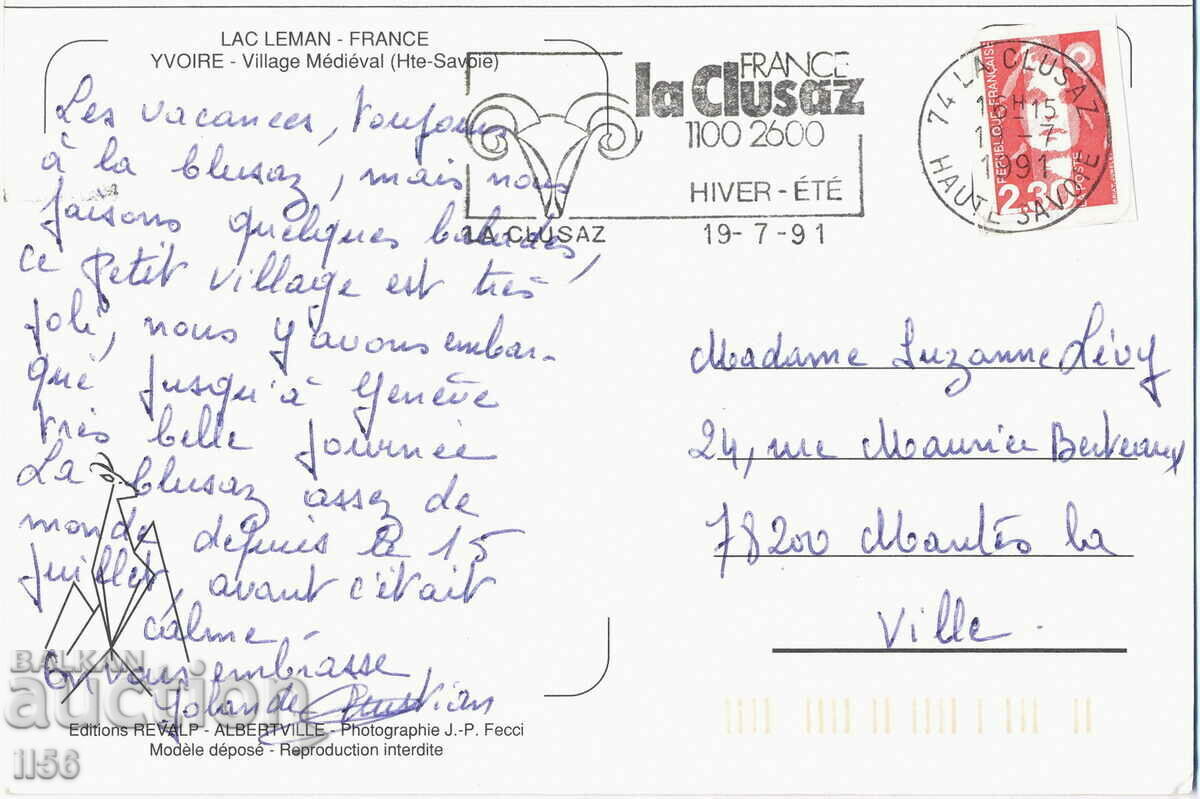 LAC LEMAN - FRANCE
YVOIRE - Village Médiéval (Hte-Savoie)
Les vacances, toujours
à la Clusaz, mais nous
faisons quelques balades,
ce petit village est très
joli, nous y avons embar-
qué jusqu'à Genève
très belle journée
La Clusaz assez de
monde depuis le 15
juillet, avant c'était
calme -
On vous embrasse,
Yolande
Editions REVALP - ALBERTVILLE - Photographie J.-P. Fecci
Modèle déposé - Reproduction interdite
FRANCE
la Clusaz
1100 2600
HIVER - ÉTÉ
LA CLUSAZ 19-7-91
74 LA CLUSAZ
15H15
19-7
1991
HAUTE SAVOIE
REPUBLIQUE FRANÇAISE
2.30
LA POSTE
Madame Suzanne Lévy
24, rue Maurice Berteaux
78200 Mantes la
Ville.
BALKAN
auction
1156